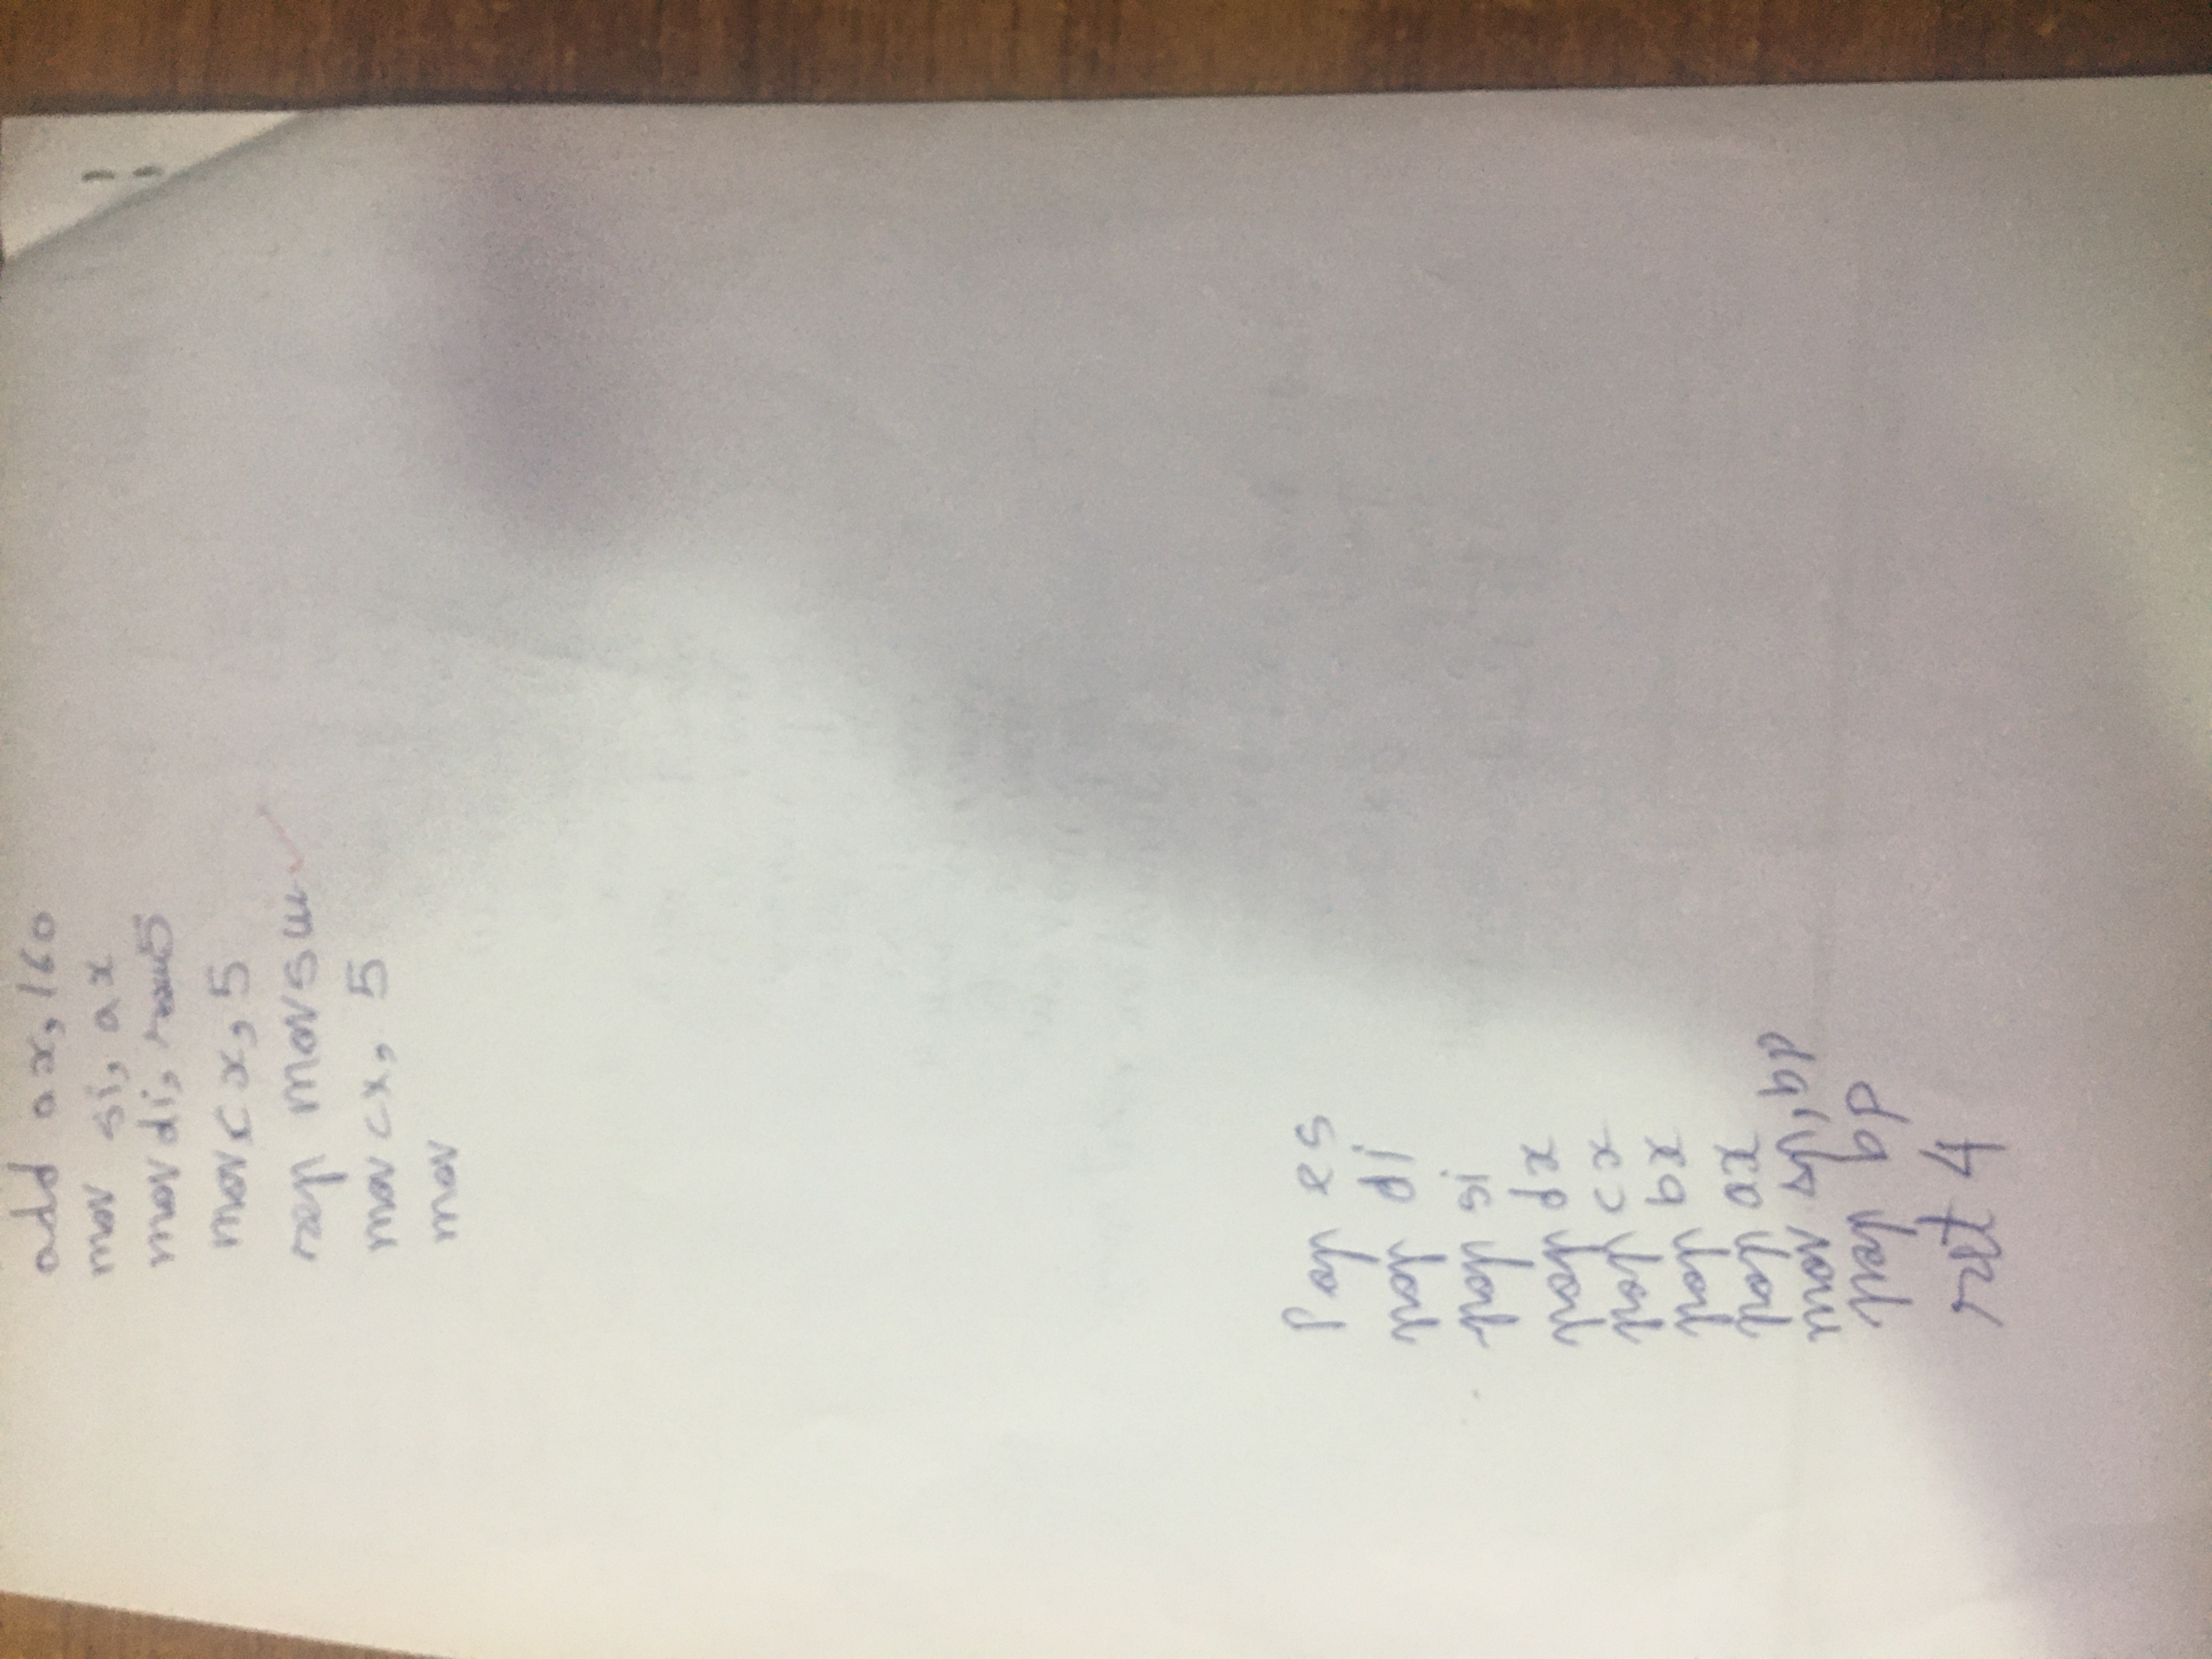 add ax, 160
mov si, ax
mov di, row5
mov cx, 5
rep movsw
mov cx, 5
mov
Pop es
pop di
pop si
pop dx
pop cx
pop bx
pop ax
mov sp, bp
pop bp
ret 4